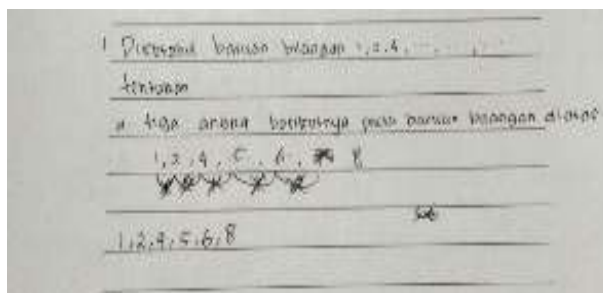 1 Diketahui barisan bilangan 1, 2, 4, ..., ..., ...
tentukan
a tiga angka berikutnya pada barisan bilangan diatas
1, 2, 4, 5, 6, 8
1, 2, 4, 5, 6, 8